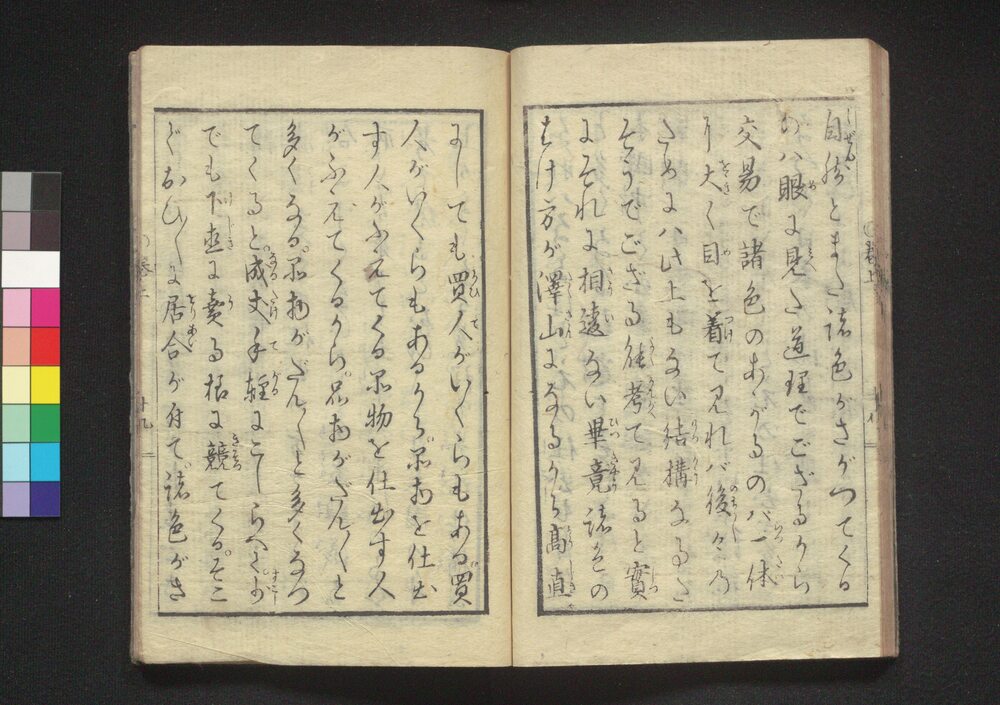 自然とまた諸色がさがつてくる
のハ眼に見へた道理でござるから
交易で諸色のあがるのハ一体
大く目を着て見れバ後々の
ためにハ此上もない結構なるこ
そうでござる能考て見ると實
にそれに相違ない畢竟諸色の
はけ方が澤山になるから高直
にしても買人がいくらもある買
人がいくらもあるから品物を仕出
す人がふえてくる品物を仕出す人
がふえてくるから品物がだん〱と
多くなる品物がだん〱と多くなつ
てくると成丈手軽にこしらへて少
でも下直に賣る様に競てくるそこ
でおひ〱に居合が付て諸色がさ